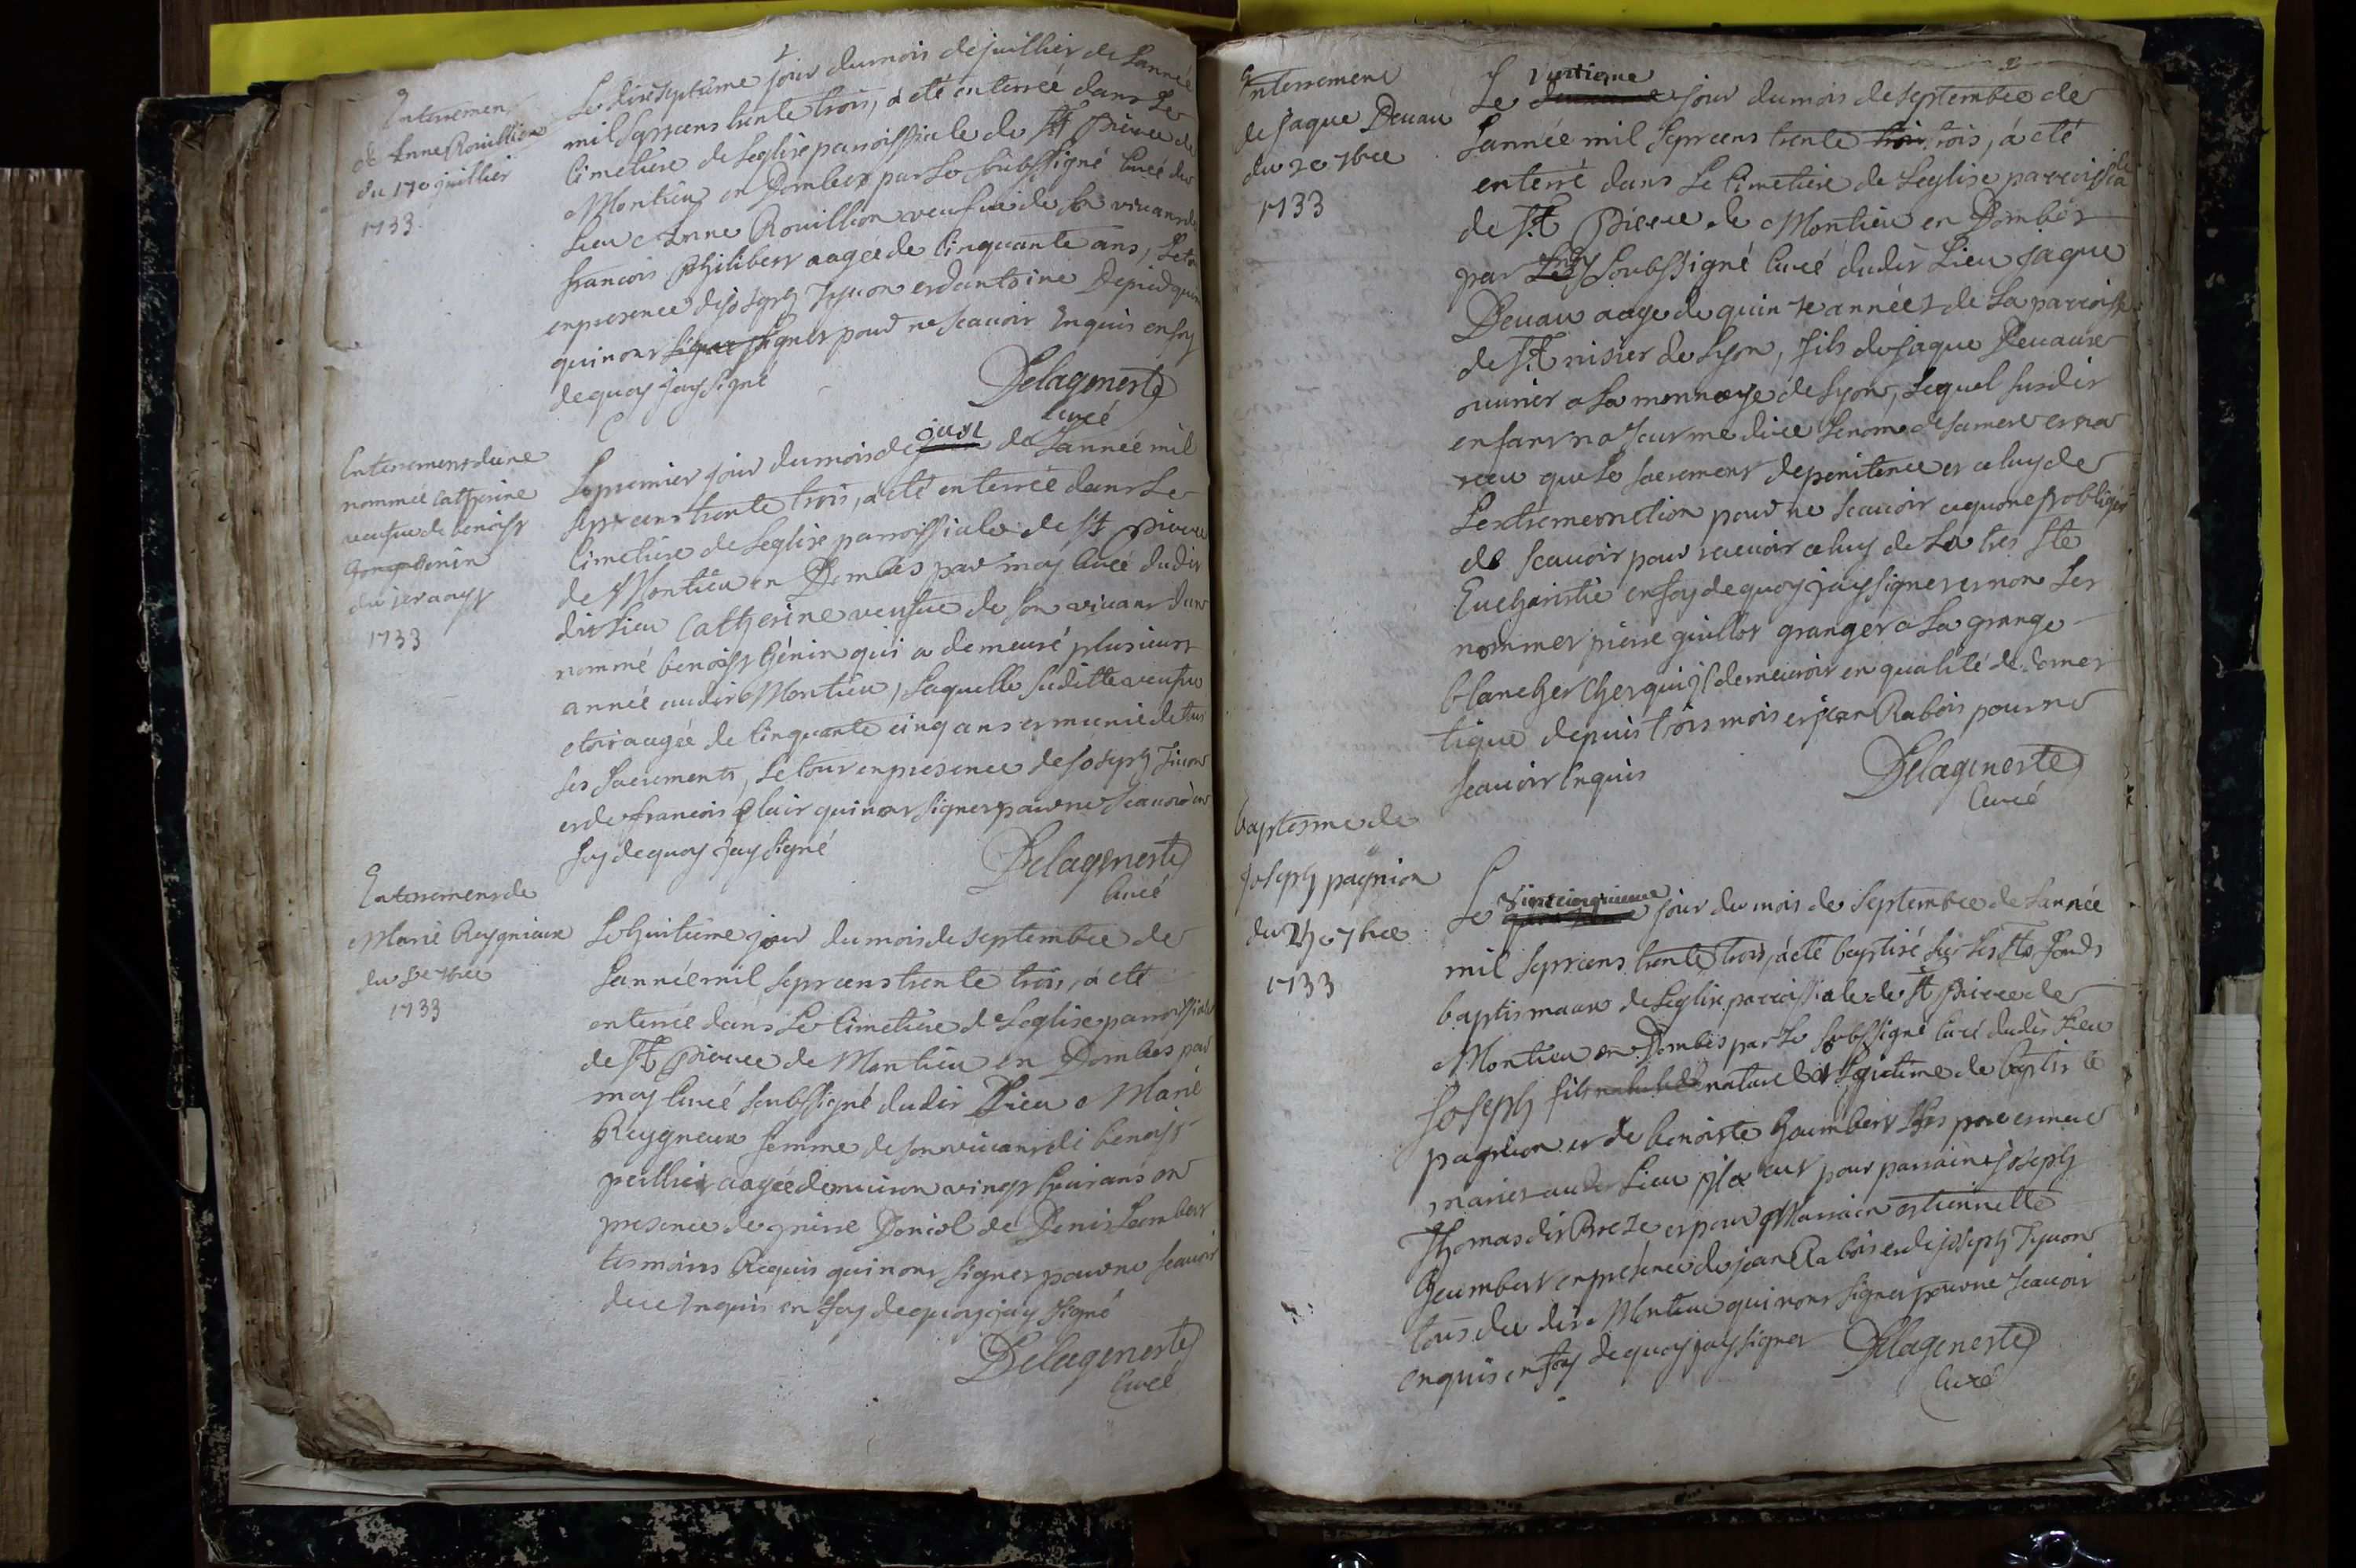 Enterremen
de Anne Rouillion
du 17e juillier
1733.
Le dixseptieme jour dumois dejuillier de Lannée
mil Septcens trente trois, á eté enterrée dans Le
Cimetiere de Leglise parroissiale de St pierre de
Montieu en Dombes par Le soubssigné Curé du
Lieu Anne Rouillion veufue de son vivant de
francois philibert aagée de Cinquante ans, Le to
enpresence dejoseph Tyuon et dantoine
quinont signer pour ne scauoir Enquis enfoy
dequoy jay signé
Delageneste
Curé
Enterrement dune
nommée Catherine
veufue de benoist
Genin
du jer aoust
1733
Lepremier jour dumois de oust de Lannée mil
Septcens trente trois, á eté enterrée dans Le
Cimetiere de Leglise parroissiale de St pierre
de Montieu en Dombes par moy Curé dudit
dit Lieu Catherine veufue de son viuant dun
nommé benoist Génin qui a demeuré plusieurs
année audit Montieu, Laquelle suditte veufue
etoit aagée de Cinquante cinq ans et munie de tus
ses sacrements, Le tout enpresence de joseph Tiuon
et de francois Clair quinont signer pour ne scauoir en
foy dequoy jay signé
Delageneste
Curé
Enterrement de
Marie Reygnieux
du 8e 7bre
1733
Le huitieme jour dumois de septembre de
Lannée mil septcens trente trois, á eté
enterrée dans Le Cimetiere de Leglise parroissiale
de St pierre de Montieu en Dombes par
moy Curé soubssigné dudit Lieu Marie
Reygneux femme de son viuant de benoist
peillier aagée denuiron vingt huit ans en
presence de pierre Doniol de Denis Lambert
tesmoins Requis quinont signer pour ne scauoir
de ce Enquis en foy dequoy jay signé
Delageneste
Curé
2
Enterrement
de jaque Deuau
du 20 7bre
1733
Le vintieme jour dumois de septembre de
Lannée mil septcens trente trois, á eté
enterré dans Le Cimetiere de Leglise parroissiale
de St pierre de Montieu en Dombes
par moy soubssigné Curé dudit Lieu jaque
Deuau aage de quinze années de La parroisse
de St nisier de Lyon, fils de jaque Deuaux
ouurier a La monnoye de Lyon, Lequel susdit
enfant na sceu me dire Lenom de samere et na
receu que Le sacrement depenitence et celuy de
Lextremeonction pour ne scauoir cequonest obligé
de scauoir pour receuoir celuy de La tres Ste
Eucharistie en foy dequoy jay signer et non Les
nommer pierre guillot granger a La grange
blancher Cherqui jl demeuroit en qualité de domes
tique depuis trois mois et jean Rabois pour ne
scauoir Enquis
Delageneste
Curé
baptesme de
joseph pagnion
du 25e 7bre
1733
Le vintcinquieme jour du mois de Septembre de Lannée
mil septcens trente trois, á eté baptisé sur Les Sts fonds
baptismaux de Leglise parroissiale de St pierre de
Montieu en Dombes par Le soubssigné Curé dudit Lieu
joseph fils naturel et Legitime de baptiste
pagnion et de benoiste humbert Ses pere et mere
mariet audt Lieu jl a eut pour parrain joseph
Thomas dit Broze et pour Marraine estiennette
humbert enpresence de jean Rabois et de joseph Tyuon
tous du dit Montieu quinont signer pour ne scauoir
enquis en foy dequoy jay signer Delageneste
Curé